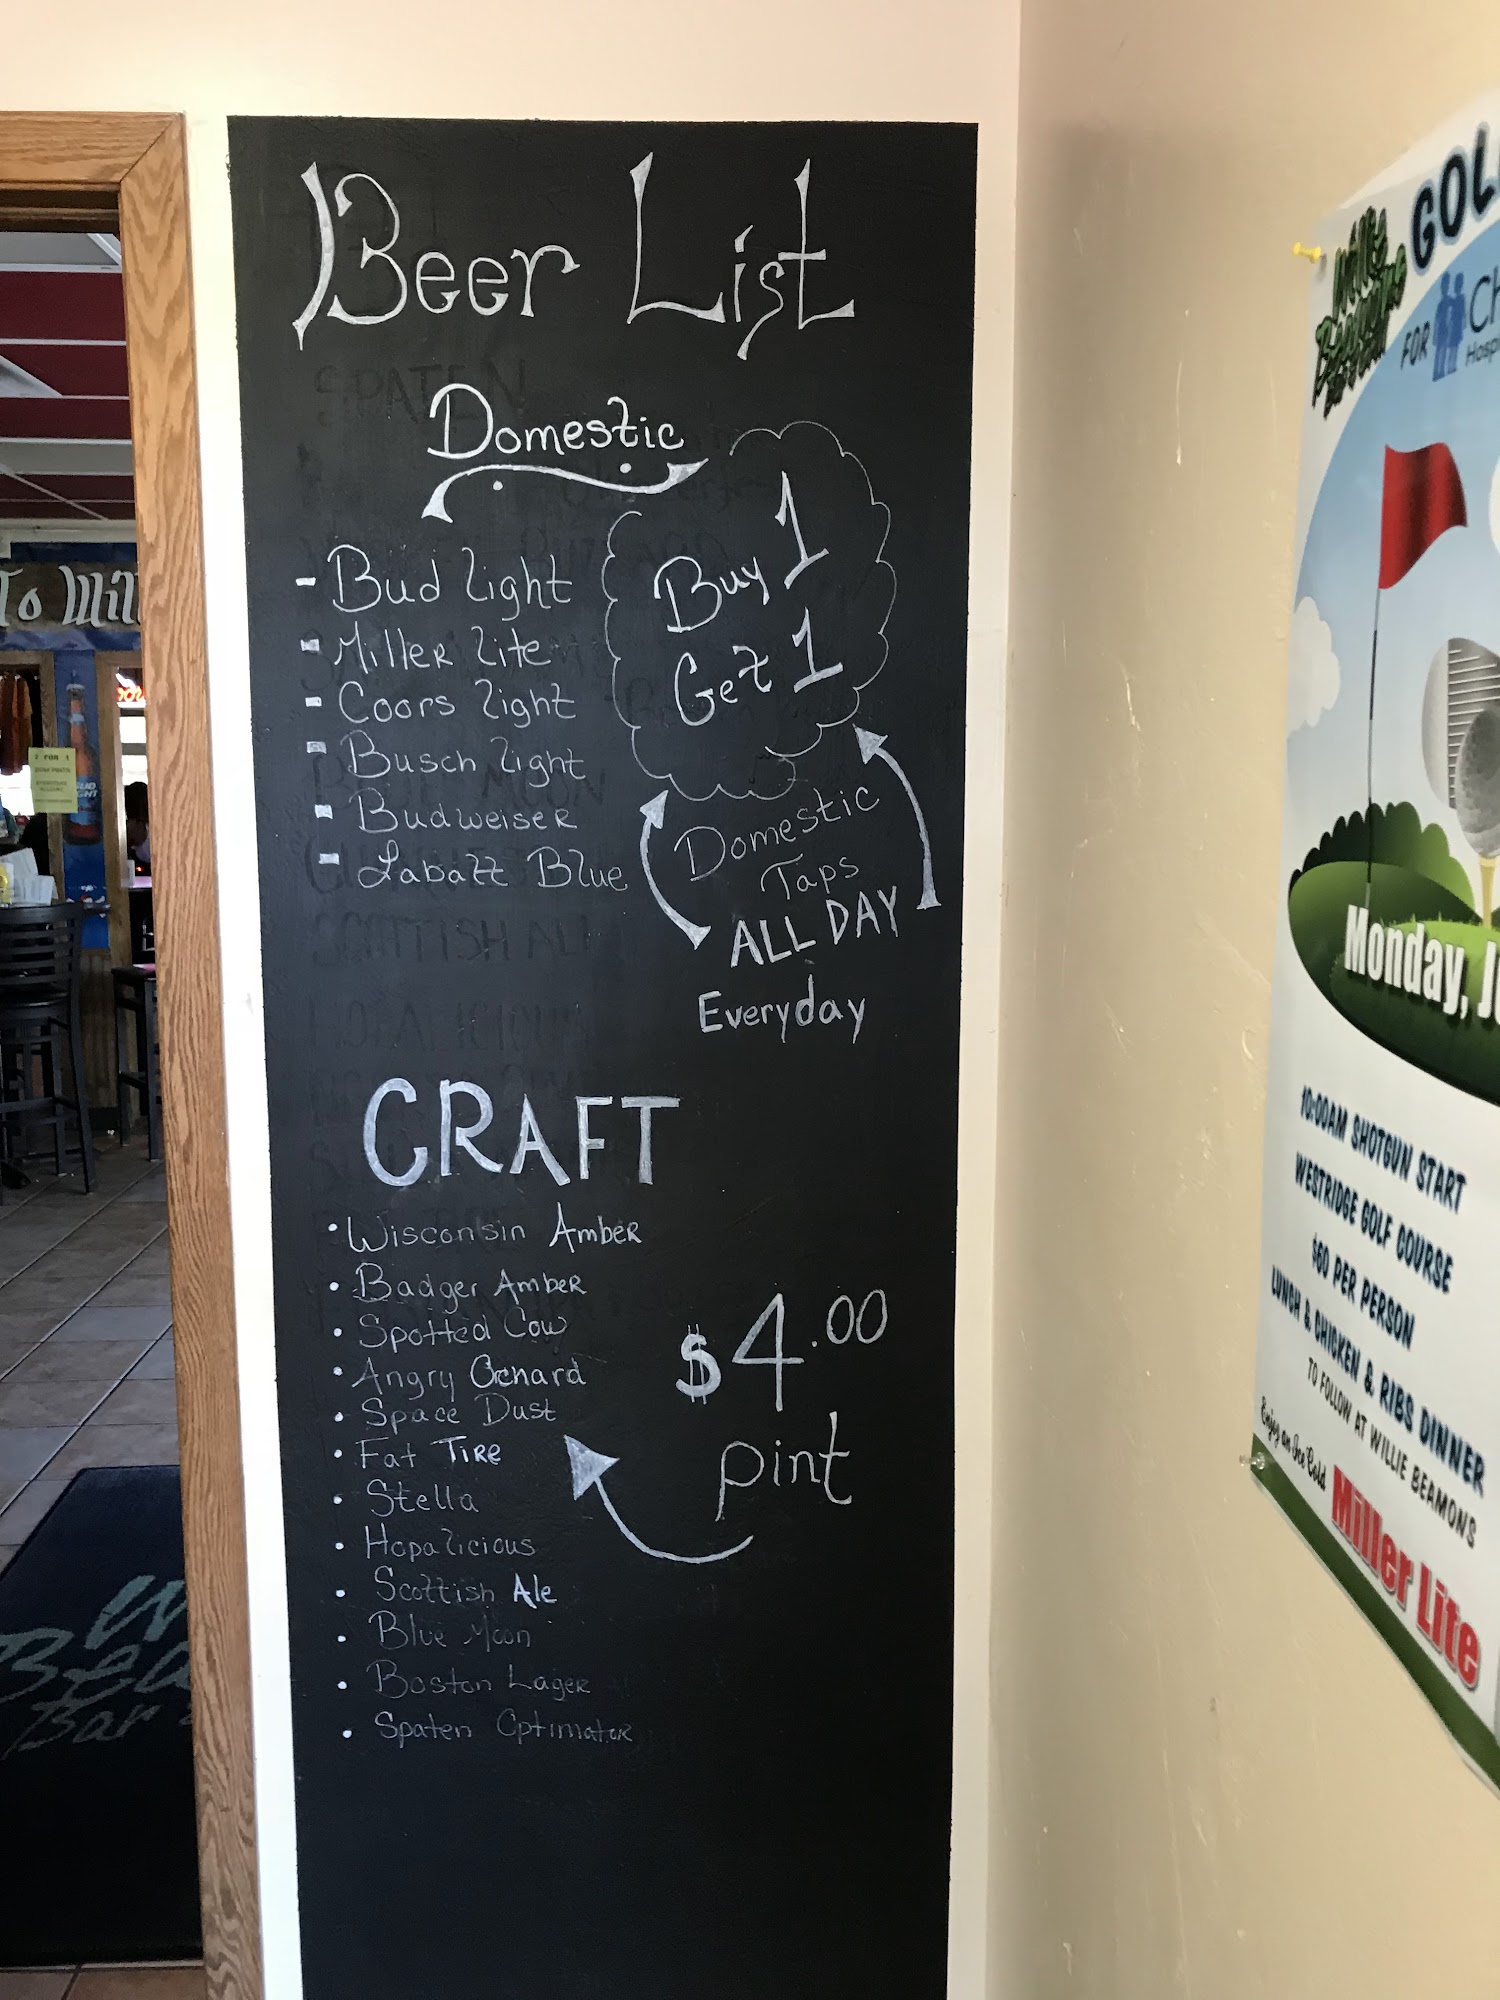 Beer List
Domestic
- Bud Light
- Miller Lite
- Coors Light
- Busch Light
- Budweiser
- Labatt Blue
Buy 1
Get 1
Domestic
Taps
ALL DAY
Everyday
CRAFT
• Wisconsin Amber
• Badger Amber
• Spotted Cow
• Angry Orchard
• Space Dust
• Fat Tire
• Stella
• Hopalicious
• Scottish Ale
• Blue Moon
• Boston Lager
• Spaten Optimator
$4.00
pint
To Will
2 FOR 1
BUD
LIGHT
Bar
Willie
Beamons
GOL
FOR Ch
Hosp
Monday, Ju
10:00AM SHOTGUN START
WESTRIDGE GOLF COURSE
$60 PER PERSON
LUNCH & CHICKEN & RIBS DINNER
TO FOLLOW AT WILLIE BEAMONS
Enjoy an Ice Cold
Miller Lite
SPATEN
SCOTTISH ALE